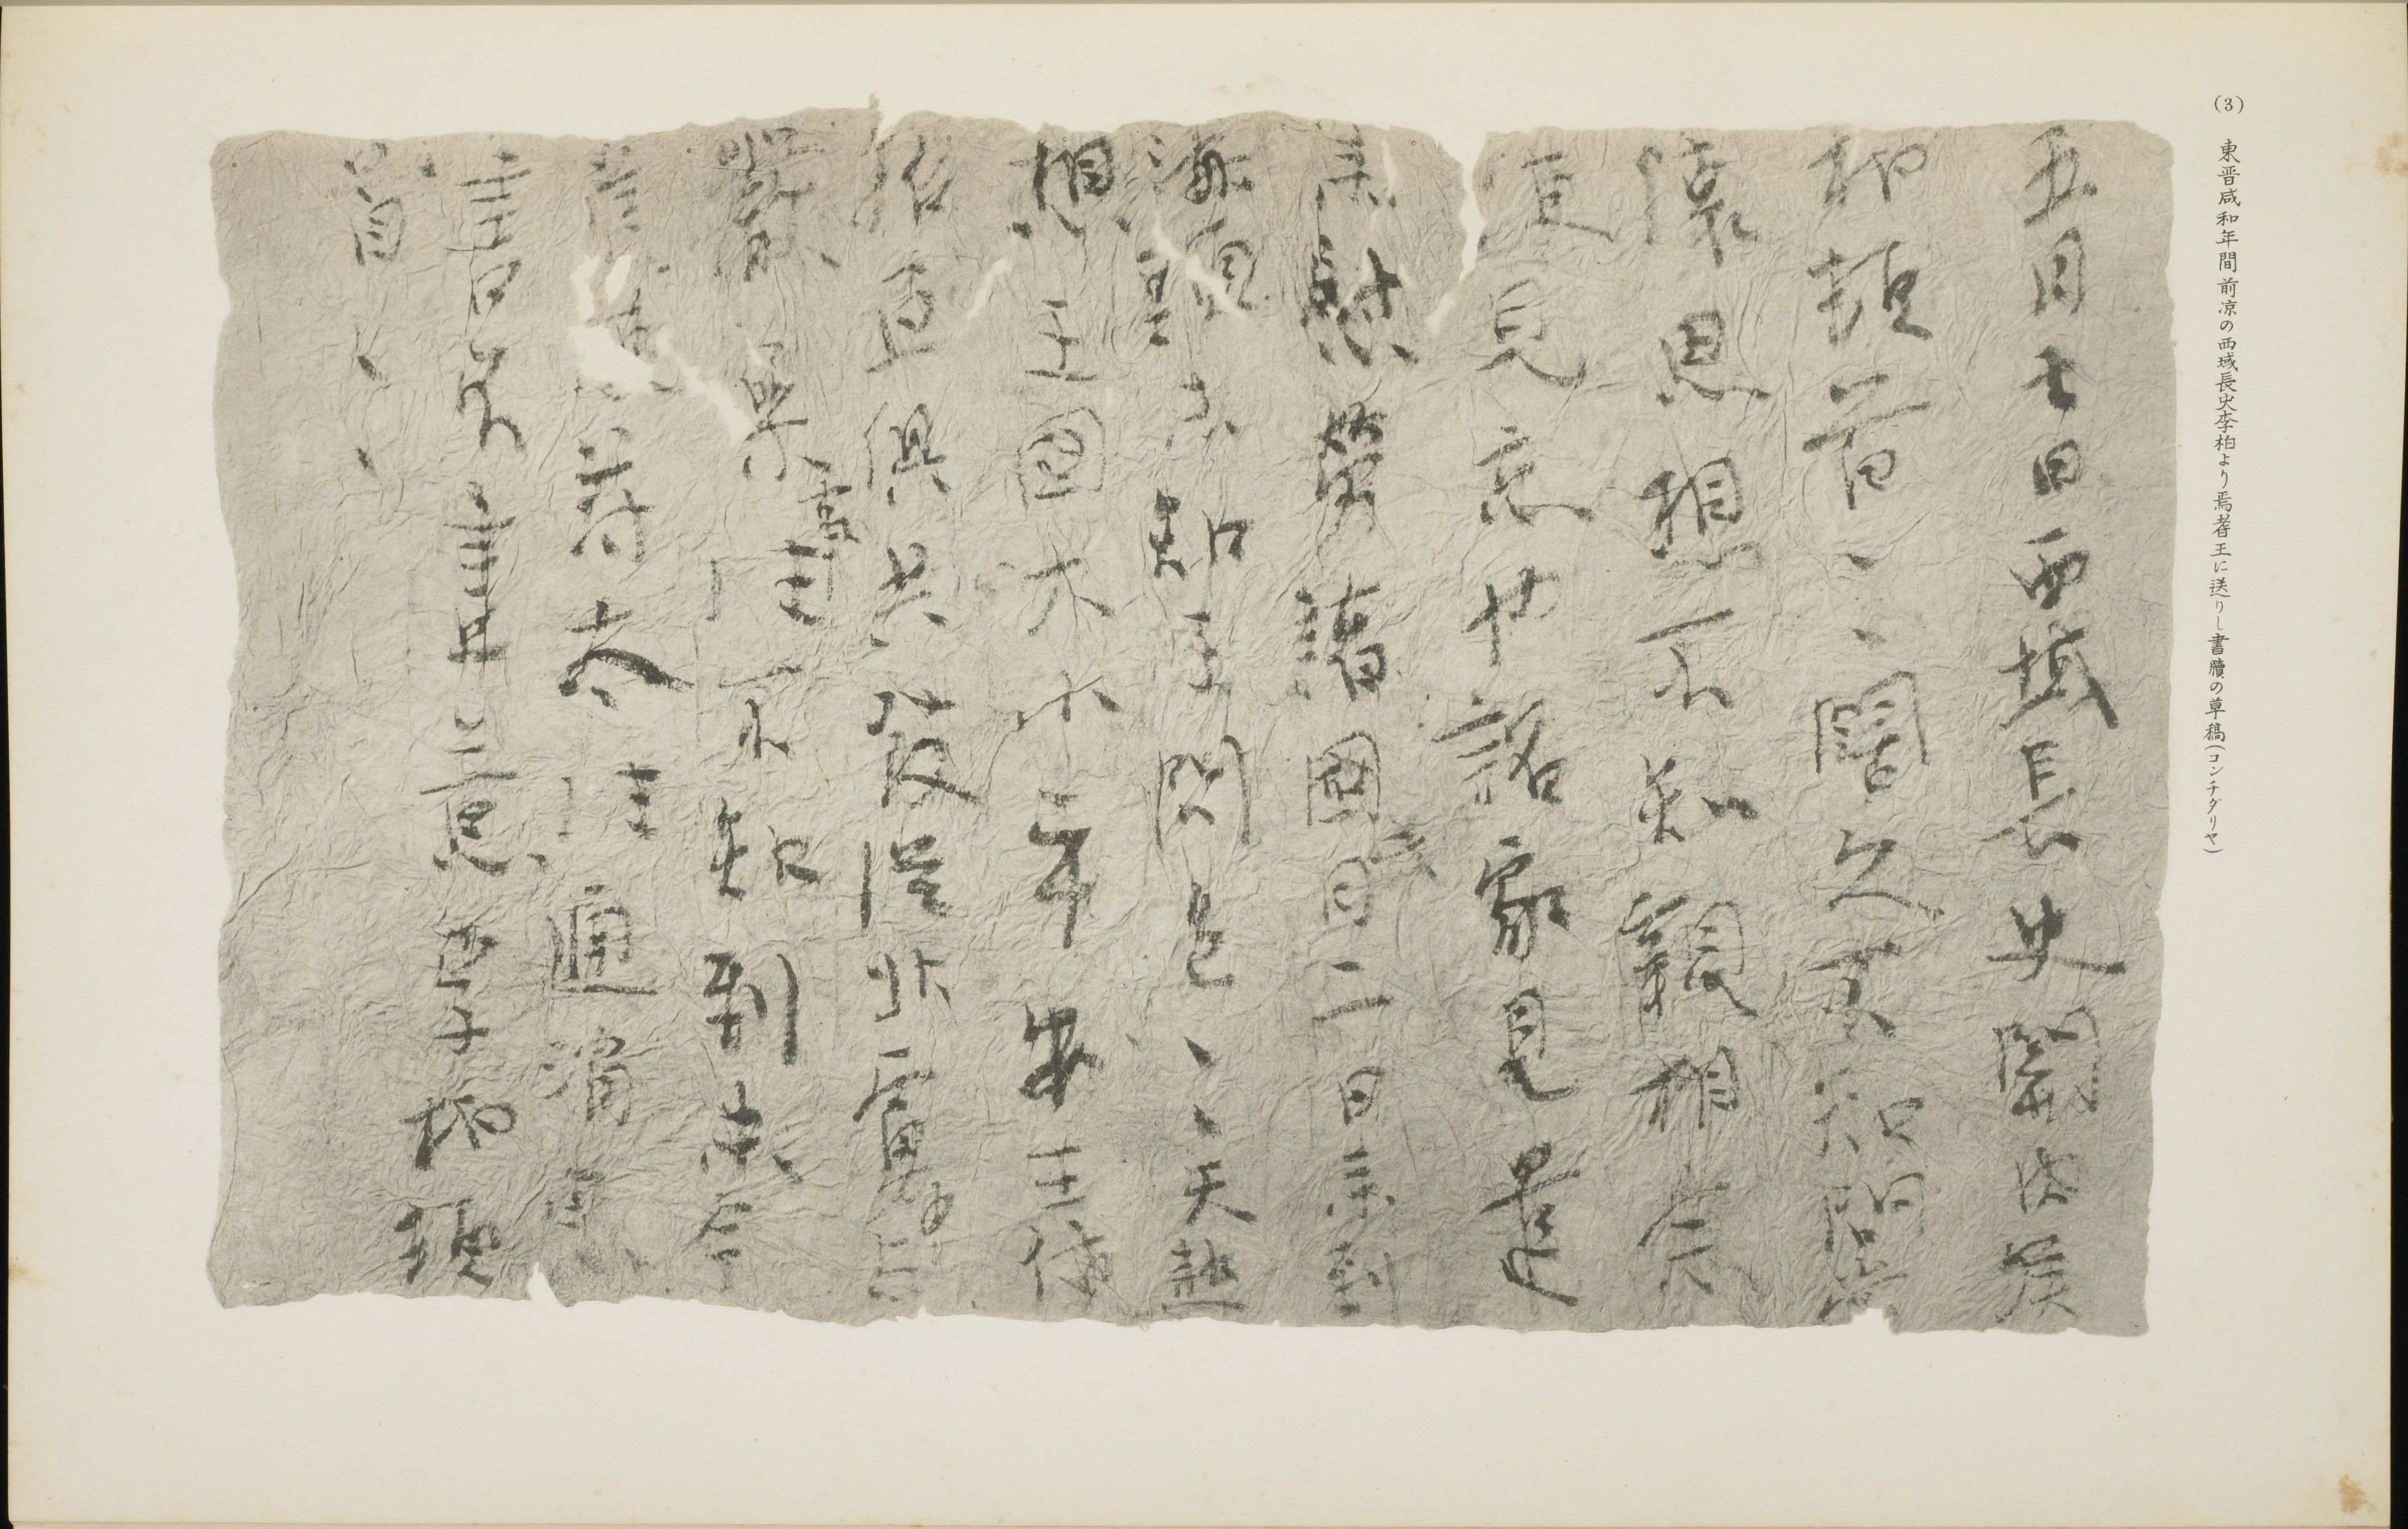 (3) 東晋咸和年間前凉の西域長史李柏より焉耆王に送りし書牘の草稿(コンチダリヤ)
五月七日西域長史關內侯
柏頓首〻〻闊久不知問常
懷思想不知親相念
便見忘也詔家見遣
來慰勞諸國此月二日來到
海頭未知王問邑〻〻天熱
想王國大小平安王使
招亙俱共發從北虜中與
嚴參事往不知到未今
遣使苻太往通消息
書不盡意李柏頓
首〻〻